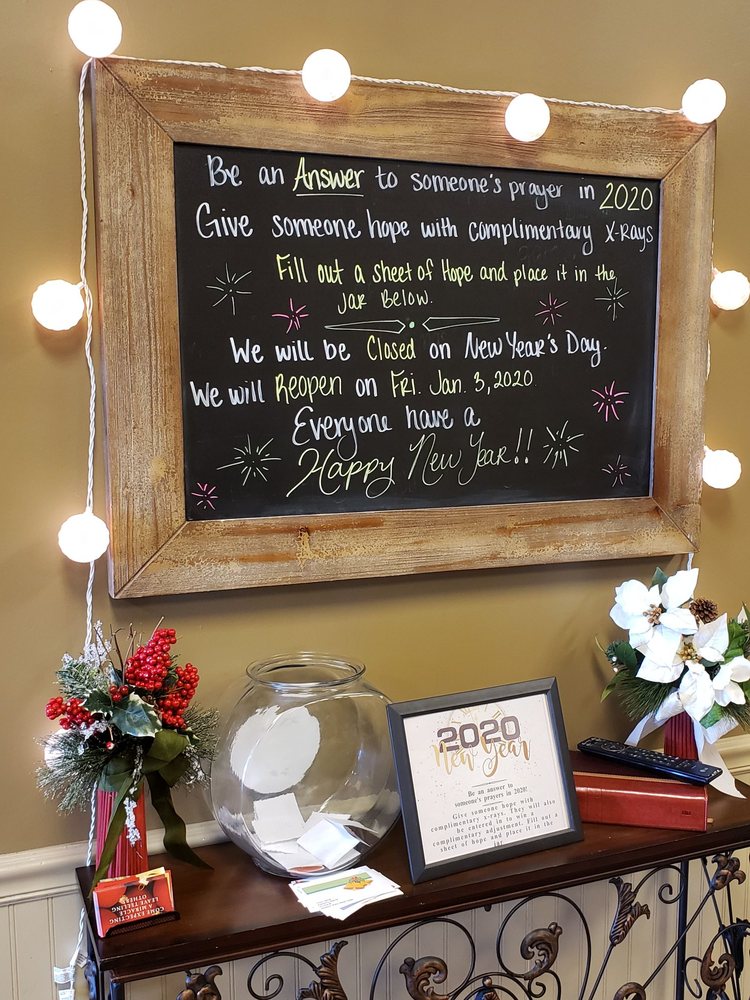 Be an Answer to someone's prayer in 2020
Give someone hope with complimentary X-Rays
Fill out a sheet of Hope and place it in the
Jar Below.
We will be Closed on New Year's Day.
We will Reopen on Fri. Jan. 3, 2020.
Everyone have a
Happy New Year!!
2020
New Year
Be an answer to
someone's prayers in 2020!
Give someone hope with
complimentary x-rays. They will also
be entered in to win a
complimentary adjustment. Fill out a
sheet of hope and place it in the
jar.
COME EXPECTING
A MIRACLE
LEAVE TELLING
OTHERS